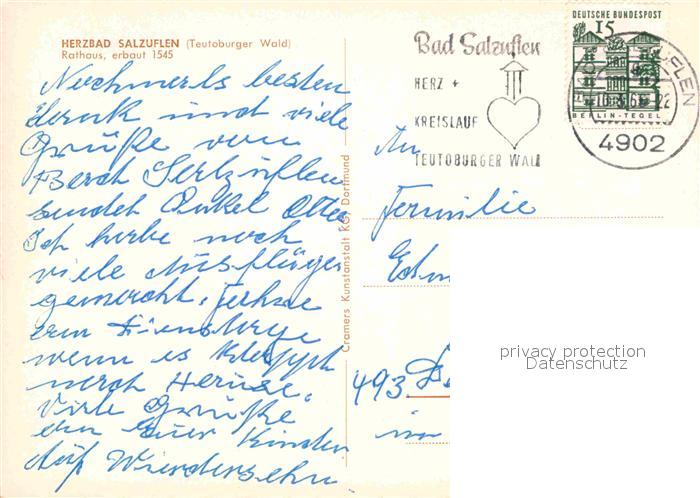 HERZBAD SALZUFLEN (Teutoburger Wald)
Rathaus, erbaut 1545
Nochmals besten
Dank und viele
Grüße von
Bad Salzuflen
sendet Onkel Otto
Ich habe noch
viele Ausflüge
gemacht, fahre
am Dienstage
wenn es klappt
nach Hause.
Viele Grüße
an Euer Kinder
Auf Wiedersehn
Cramers Kunstanstalt KG, Dortmund
Bad Salzuflen
HERZ +
KREISLAUF
TEUTOBURGER WALD
DEUTSCHE BUNDESPOST
15
BERLIN-TEGEL
4902
An
Familie
493
in
privacy protection
Datenschutz